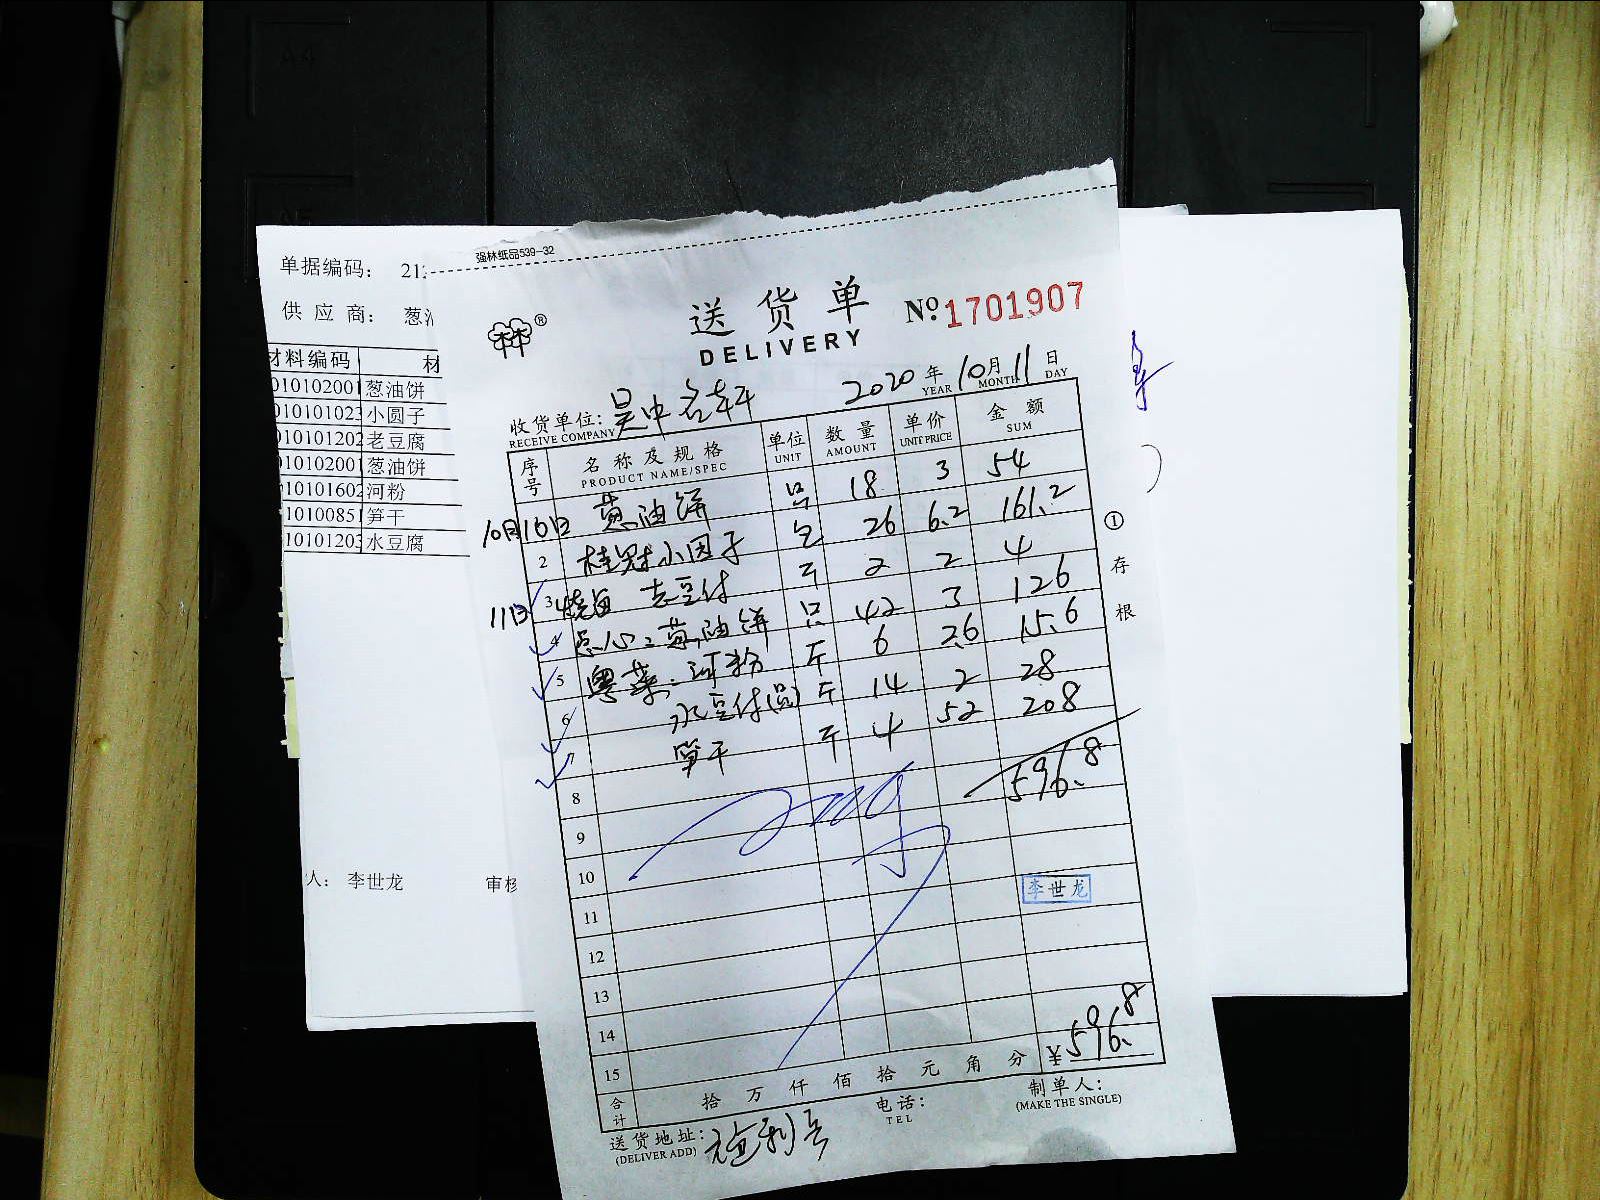 单据编码： 21
供 应 商： 葱油
材料编码 材
010102001 葱油饼
010101023 小圆子
010101202 老豆腐
010102001 葱油饼
10101602 河粉
10100851 笋干
10101203 水豆腐
人： 李世龙 审核
强林纸品539-32
林林 ®
送 货 单 Nº 1701907
DELIVERY
2020 年 10 月 11 日
YEAR MONTH DAY
收货单位: 吴中名轩
RECEIVE COMPANY
序号 名 称 及 规 格 单位 数 量 单价 金 额
PRODUCT NAME/SPEC UNIT AMOUNT UNIT PRICE SUM
10月10日 葱油饼 只 18 3 54
2 桂冠小圆子 包 26 6.2 161.2
11日 3 烧鱼 老豆付 斤 2 2 4
4 点心：葱油饼 只 42 3 126
5 粤菜：河粉 斤 6 2.6 15.6
6 水豆付(圆) 斤 14 2 28
7 笋干 斤 4 52 208
8 596.8
9
10
11 李世龙
12
13
14
15
合计 拾 万 仟 佰 拾 元 角 分 ¥596.8
送货地址:
(DELIVER ADD)
电话:
TEL
制单人:
(MAKE THE SINGLE)
① 存根